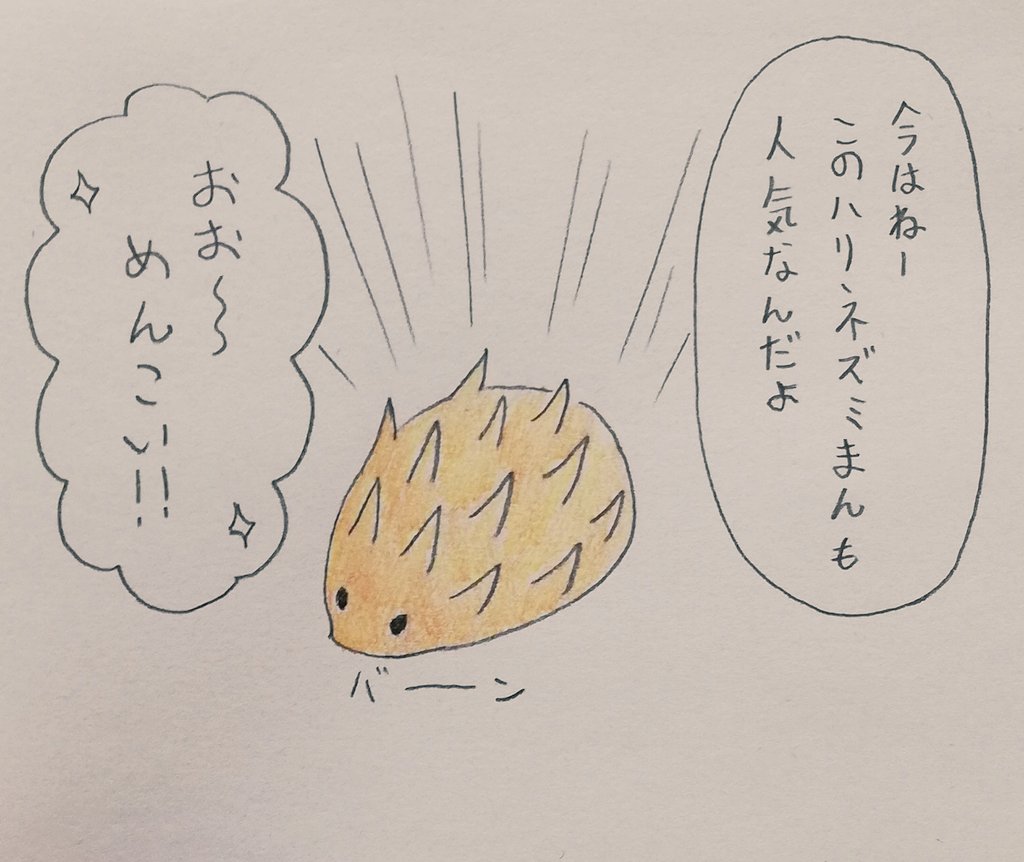 今はねー
このハリネズミまんも
人気なんだよ
おお〜〜
めんこい!!
バーン